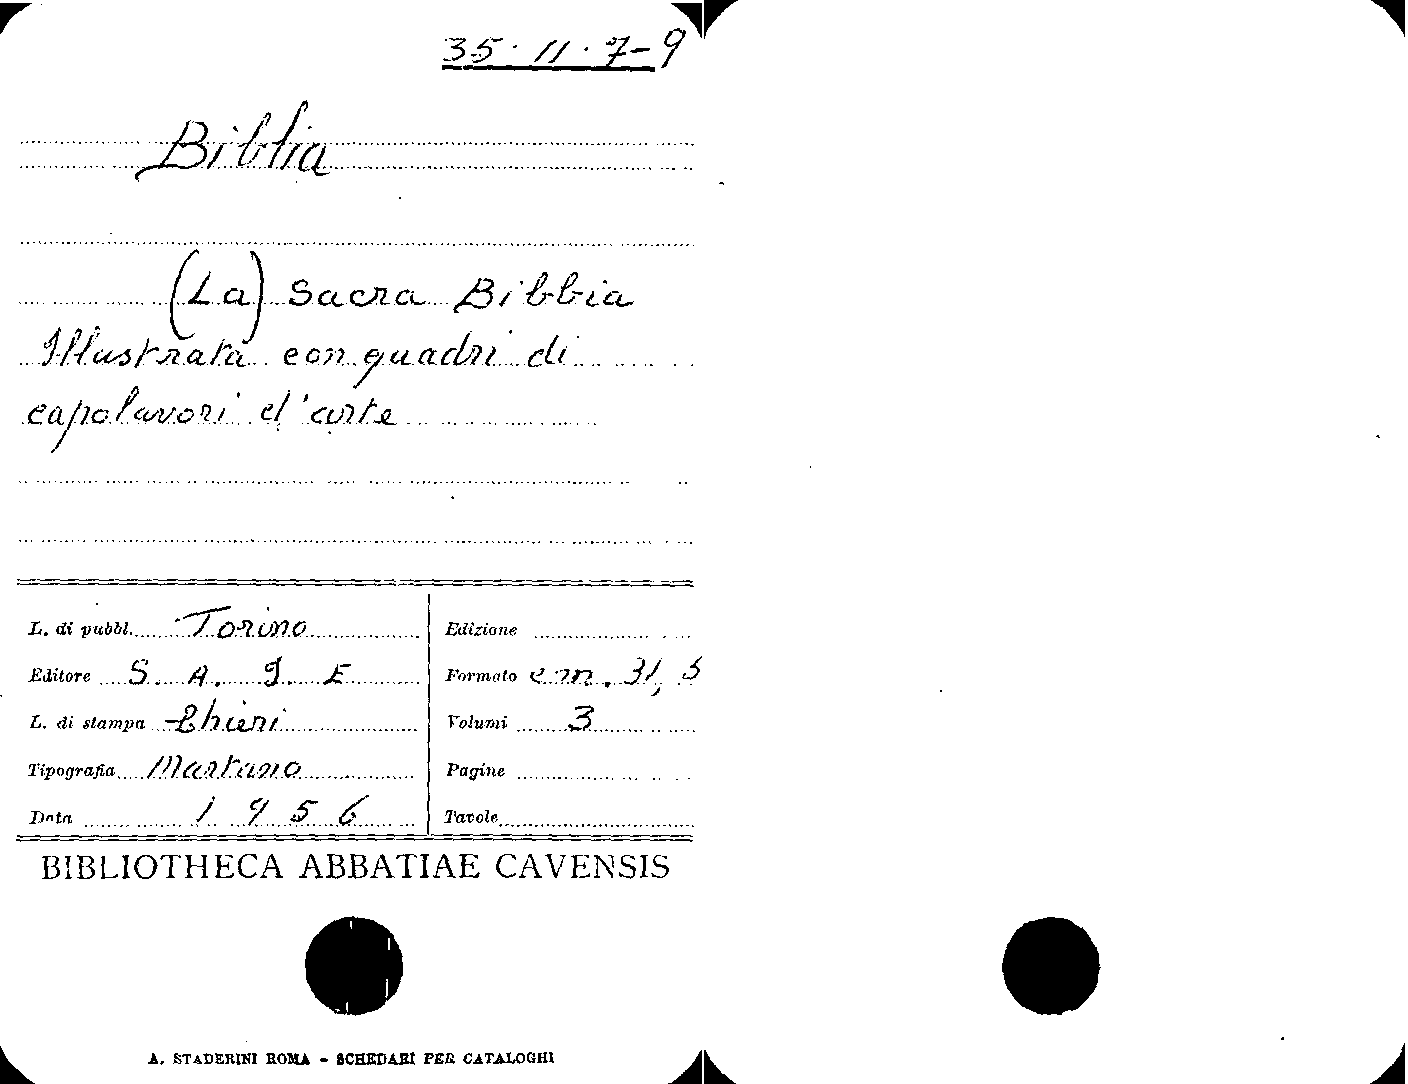 35·11·7-9
Biblia
(La) Sacra Bibbia
Illustrata con quadri di
capolavori d'arte
L. di pubbl. Torino
Editore S. A. I. E
L. di stampa Chieri
Tipografia Martano
Data 1956
Edizione
Formato cm. 31,5
Volumi 3
Pagine
Tavole
BIBLIOTHECA ABBATIAE CAVENSIS
A. STADERINI ROMA - SCHEDARI PER CATALOGHI